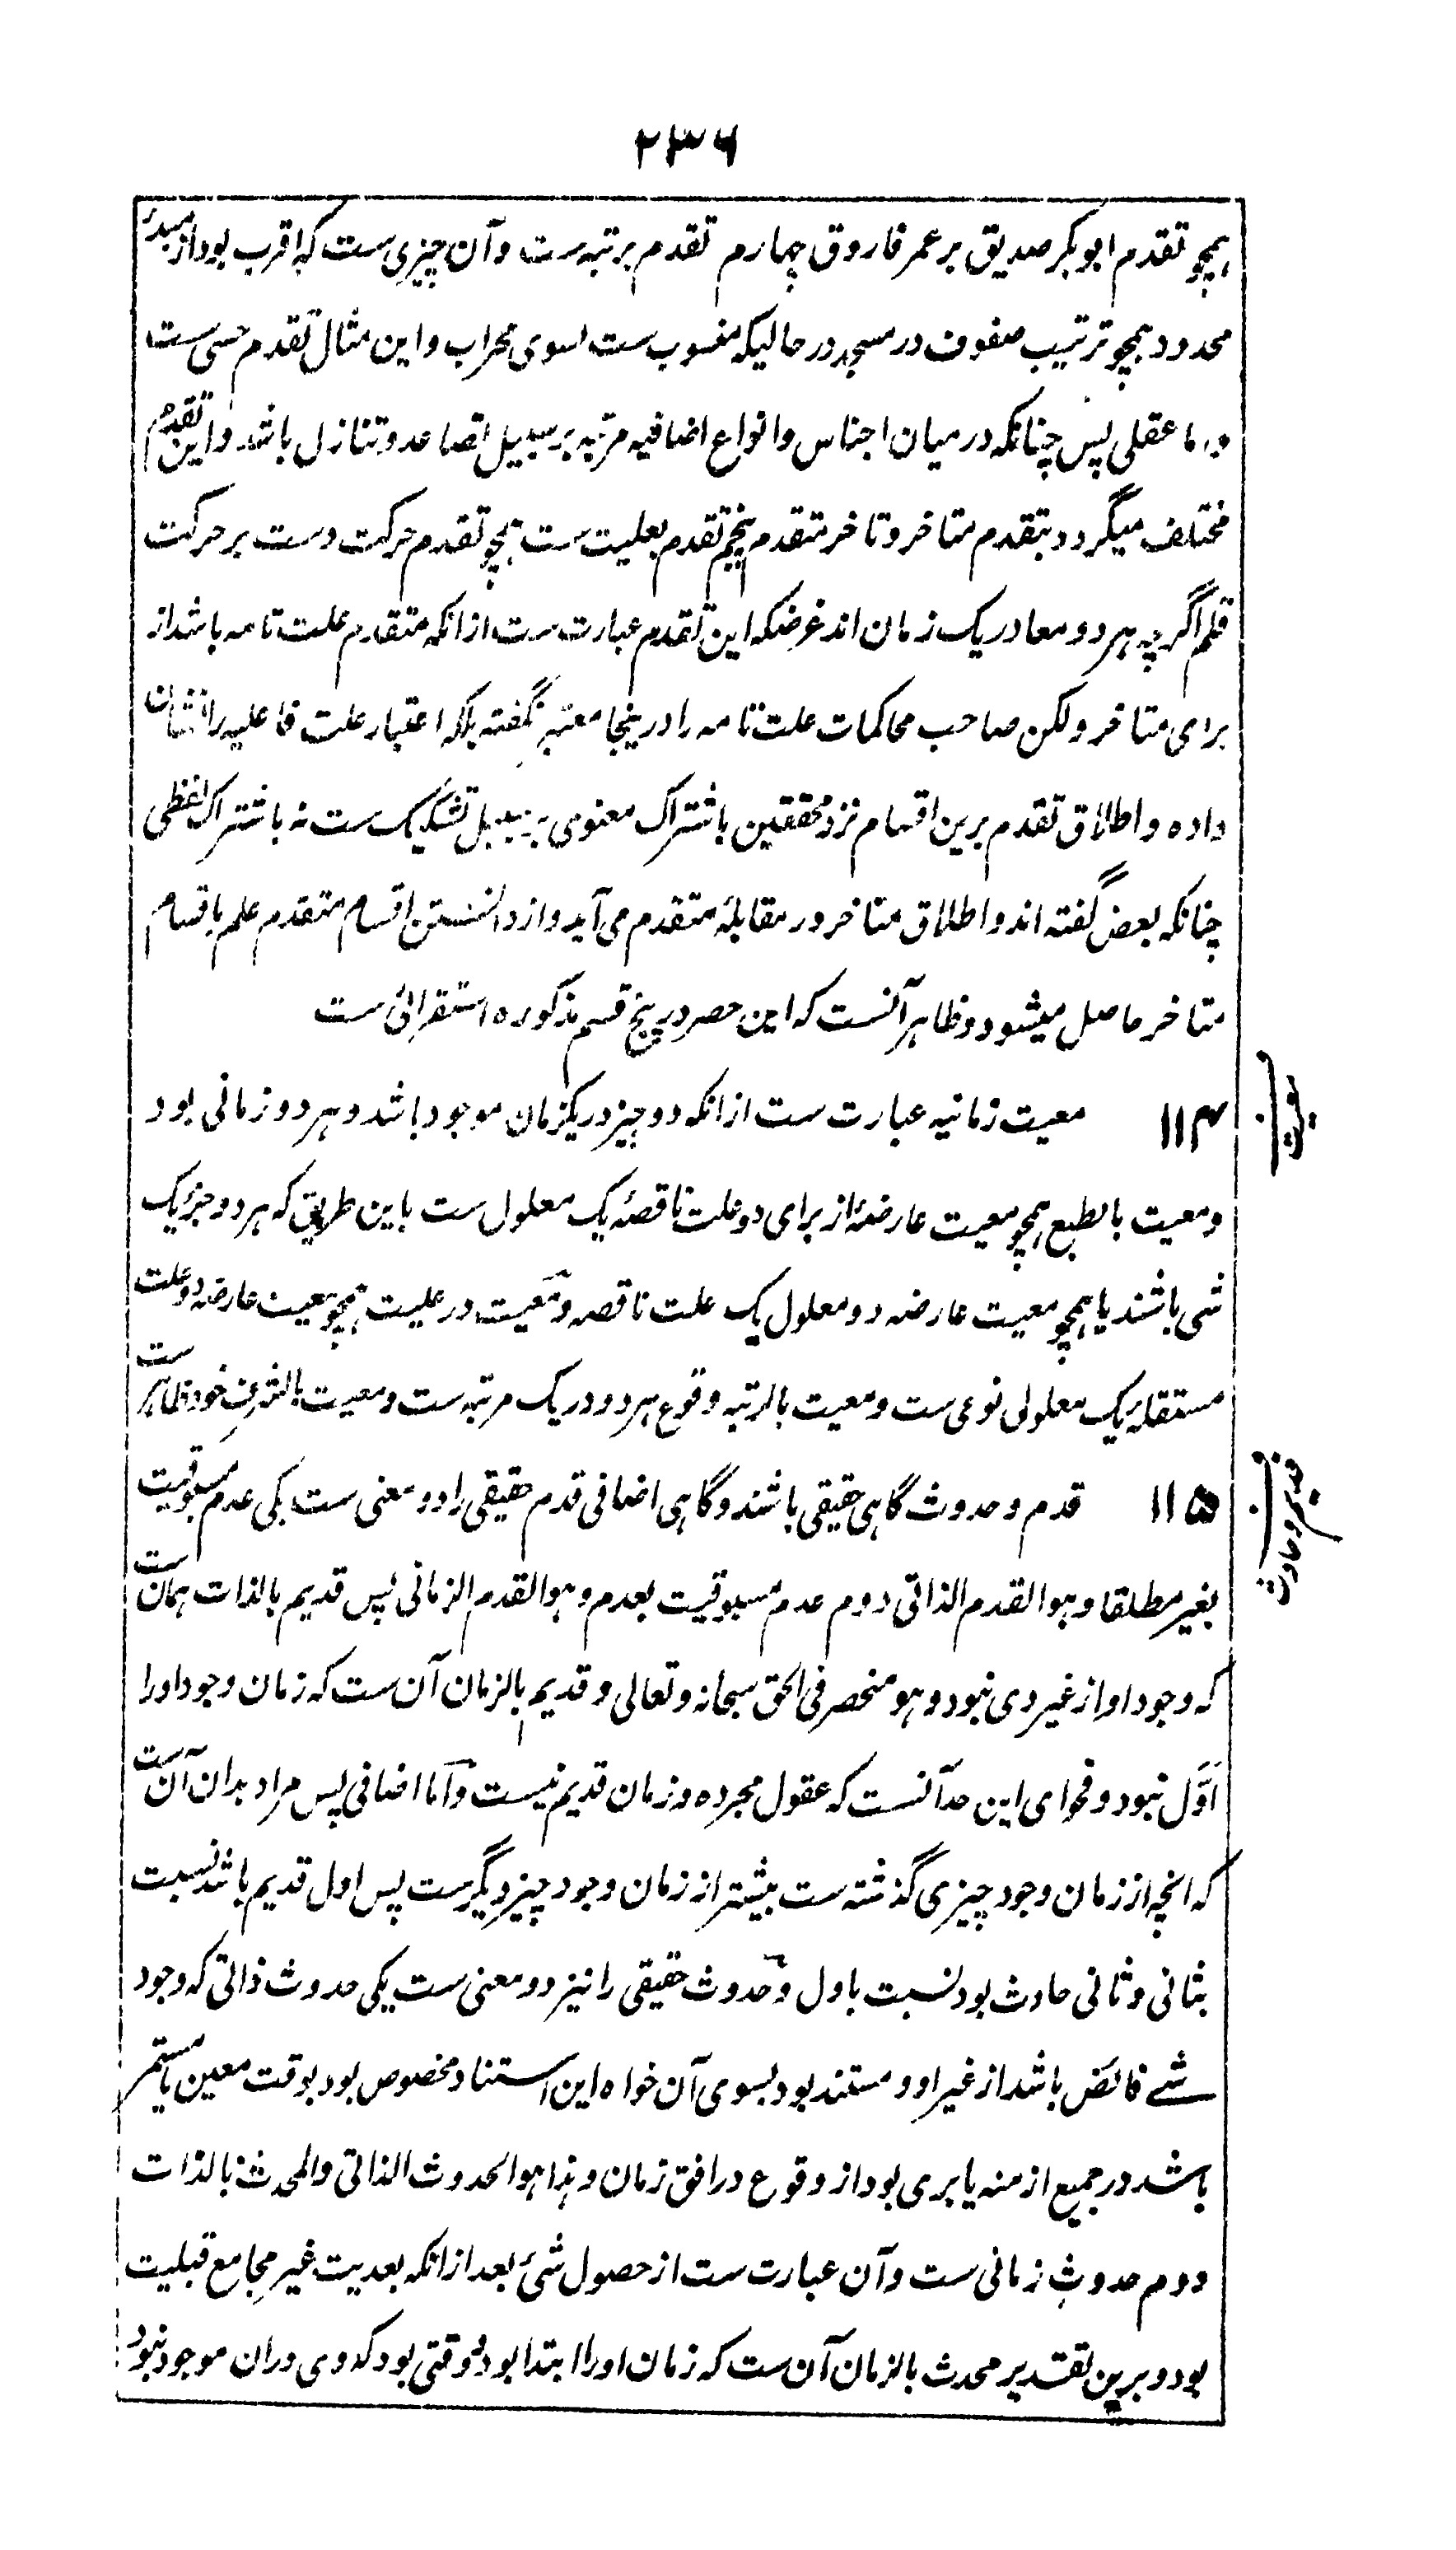 ۲۳۶
همچو تقدم ابوبکر صدیق بر عمر فاروق چهارم تقدم برتبه ست و آن چیزی ست که اقرب بود از مبدء
محدود همچو ترتیب صفوف در مسجد در حالیکه منسوب ست بسوی محراب و این مثال تقدم حسی ست
و اما عقلی پس چنانکه در میان اجناس و انواع اضافیه مرتبه بر سبیل تصاعد و تنازل باشد و این تقدم
مختلف میگردد بتقدم متاخر و تاخر متقدم پنجم تقدم بعلیت ست همچو تقدم حرکت دست بر حرکت
قلم اگرچه هر دو معا در یک زمان اند غرضکه این تقدم عبارت ست از انکه متقدم علت تامه باشد از
برای متاخر و لکن صاحب محاکمات علت تامه را درینجا معتبر نگفته بلکه اعتبار علت فاعلیه را نشان
داده و اطلاق تقدم برین اقسام نزد محققین باشتراک معنوی بر سبیل تشکیک ست نه باشتراک لفظی
چنانکه بعض گفته اند و اطلاق متاخر در مقابلهٔ متقدم می آید و از دانستن اقسام متقدم علم باقسام
متاخر حاصل میشود و ظاهر آنست که این حصر در پنج قسم مذکوره استقرائی ست
معیت
۱۱۴ معیت زمانیه عبارت ست از انکه دو چیز در یکزمان موجود باشد و هر دو زمانی بود
و معیت بالطبع همچو معیت عارضهٔ از برای دو علت ناقصهٔ یک معلول ست باین طریق که هر دو جزء یک
شی باشند یا همچو معیت عارضه دو معلول یک علت ناقصه و معیت در علیت همچو معیت عارضه دو علت
مستقله یک معلولی نوعی ست و معیت بالرتبه وقوع هر دو در یک مرتبه ست و معیت بالشرف خود ظاهر ست
قدیم و حادث
۱۱۵ قدم و حدوث گاهی حقیقی باشند و گاهی اضافی قدم حقیقی را دو معنی ست یکی عدم مسبوقیت
بغیر مطلقا و هو القدم الذاتی دوم عدم مسبوقیت بعدم و هو القدم الزمانی پس قدیم بالذات همان ست
که وجود او از غیر وی نبود و هو منحصر فی الحق سبحانه و تعالی و قدیم بالزمان آن ست که زمان وجود او را
اوّل نبود و فحوای این حد آنست که عقول مجرده و زمان قدیم نیست و اما اضافی پس مراد بدان آن ست
که انچه از زمان وجود چیزی گذشته ست بیشتر از زمان وجود چیز دیگرست پس اول قدیم باشد نسبت
بثانی و ثانی حادث بود نسبت باول و حدوث حقیقی را نیز دو معنی ست یکی حدوث ذاتی که وجود
شے فائض باشد از غیر او و مستند بود بسوی آن خواه این استناد مخصوص بود بوقت معین یا مستمر
باشد در جمیع ازمنه یا بری بود از وقوع در افق زمان و هذا هو الحدوث الذاتی والمحدث بالذات
دوم حدوث زمانی ست و آن عبارت ست از حصول شیٔ بعد از انکه بعدیت غیر مجامع قبلیت
بود و برین تقدیر محدث بالزمان آن ست که زمان او را ابتدا بود و وقتی بود که وی دران موجود نبود